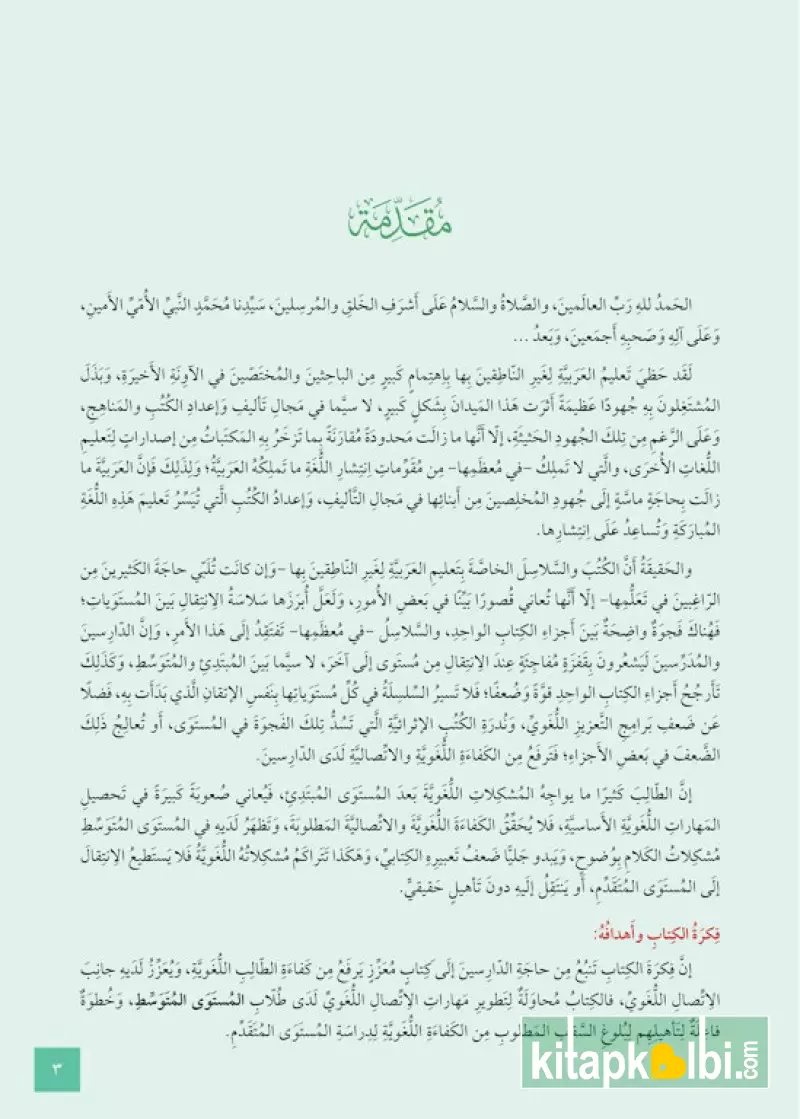 مُقَدِّمَة
الحَمدُ للهِ رَبِّ العالَمينَ، والصَّلاةُ والسَّلامُ عَلَى أَشرَفِ الخَلقِ والمُرسِلينَ، سَيِّدِنا مُحَمَّدٍ النَّبِيِّ الأُمّيِّ الأَمينِ،
وَعَلَى آلِهِ وَصَحبِهِ أَجمَعينَ، وَبَعدُ ...
لَقَد حَظِيَ تَعليمُ العَرَبيَّةِ لِغَيرِ النّاطِقينَ بِها بِاِهتِمامٍ كَبيرٍ مِن الباحِثينَ والمُختَصّينَ في الآوِنَةِ الأَخيرَةِ، وَبَذَلَ
المُشتَغِلونَ بِهِ جُهودًا عَظيمَةً أَثرَت هَذا المَيدانَ بِشَكلٍ كَبيرٍ، لا سيَّما في مَجالِ تَأليفِ وَإعدادِ الكُتُبِ والمَناهِجِ،
وَعَلَى الرَّغمِ مِن تِلكَ الجُهودِ الحَثيثَةِ، إلّا أَنَّها ما زالَت مَحدودَةً مُقارَنَةً بِما تَزخَرُ بِهِ المَكتَباتُ مِن إصداراتٍ لِتَعليمِ
اللُّغاتِ الأُخرَى، والَّتي لا تَملِكُ -في مُعظَمِها- مِن مُقَوِّماتِ اِنتِشارِ اللُّغَةِ ما تَملِكُهُ العَرَبيَّةُ؛ وَلِذَلِكَ فَإنَّ العَرَبيَّةَ ما
زالَت بِحاجَةٍ ماسَّةٍ إلَى جُهودِ المُخلِصينَ مِن أَبنائِها في مَجالِ التَّأليفِ، وَإعدادِ الكُتُبِ الَّتي تُيَسِّرُ تَعليمَ هَذِهِ اللُّغَةِ
المُبارَكَةِ وَتُساعِدُ عَلَى اِنتِشارِها.
والحَقيقَةُ أَنَّ الكُتُبَ والسَّلاسِلَ الخاصَّةَ بِتَعليمِ العَرَبيَّةِ لِغَيرِ النّاطِقينَ بِها -وَإن كانَت تُلَبّي حاجَةَ الكَثيرينَ مِن
الرّاغِبينَ في تَعَلُّمِها- إلّا أَنَّها تُعاني قُصورًا بَيِّنًا في بَعضِ الأُمورِ، وَلَعَلَّ أَبرَزَها سَلاسَةُ الاِنتِقالِ بَينَ المُستَوَياتِ؛
فَهُناكَ فَجوَةٌ واضِحَةٌ بَينَ أَجزاءِ الكِتابِ الواحِدِ، والسَّلاسِلُ -في مُعظَمِها- تَفتَقِدُ إلَى هَذا الأَمرِ، وَإنَّ الدّارِسينَ
والمُدَرِّسينَ لَيَشعُرونَ بِقَفزَةٍ مُفاجِئَةٍ عِندَ الاِنتِقالِ مِن مُستَوى إلَى آخَرَ، لا سيَّما بَينَ المُبتَدِئِ والمُتَوَسِّطِ، وَكَذَلِكَ
تَأَرجُحُ أَجزاءِ الكِتابِ الواحِدِ قوَّةً وَضُعفًا؛ فَلا تَسيرُ السِّلسِلَةُ في كُلِّ مُستَوَياتِها بِنَفسِ الإتقانِ الَّذي بَدَأَت بِهِ، فَضلًا
عَن ضَعفِ بَرامِجِ التَّعزيزِ اللُّغَويِّ، وَنُدرَةِ الكُتُبِ الإثرائيَّةِ الَّتي تَسُدُّ تِلكَ الفَجوَةَ في المُستَوَى، أَو تُعالِجُ ذَلِكَ
الضَّعفَ في بَعضِ الأَجزاءِ؛ فَتَرفَعُ مِن الكَفاءَةِ اللُّغَويَّةِ والاتِّصاليَّةِ لَدَى الدّارِسينَ.
إنَّ الطّالِبَ كَثيرًا ما يواجِهُ المُشكِلاتِ اللُّغَويَّةَ بَعدَ المُستَوَى المُبتَدِئِ، فَيُعاني صُعوبَةً كَبيرَةً في تَحصيلِ
المَهاراتِ اللُّغَويَّةِ الأَساسيَّةِ، فَلا يُحَقِّقُ الكَفاءَةَ اللُّغَويَّةَ والاتِّصاليَّةَ المَطلوبَةَ، وَتَظهَرُ لَدَيهِ في المُستَوَى المُتَوَسِّطِ
مُشكِلاتُ الكَلامِ بِوُضوحٍ، وَيَبدو جَليًّا ضَعفُ تَعبيرِهِ الكِتابيِّ، وَهَكَذا تَتَراكَمُ مُشكِلاتُهُ اللُّغَويَّةُ فَلا يَستَطيعُ الاِنتِقالَ
إلَى المُستَوَى المُتَقَدِّمِ، أَو يَنتَقِلُ إلَيهِ دونَ تَأهيلٍ حَقيقيٍّ.
فِكرَةُ الكِتابِ وأَهدافُهُ:
إنَّ فِكرَةَ الكِتابِ تَنبُعُ مِن حاجَةِ الدّارِسينَ إلَى كِتابٍ مُعَزِّزٍ يَرفَعُ مِن كَفاءَةِ الطّالِبِ اللُّغَويَّةِ، وَيُعَزِّزُ لَدَيهِ جانِبَ
الاِتِّصالِ اللُّغَويِّ، فالكِتابُ مُحاوَلَةٌ لِتَطويرِ مَهاراتِ الاِتِّصالِ اللُّغَويِّ لَدَى طُلّابِ المُستَوَى المُتَوَسِّطِ، وَخُطوَةٌ
فاعِلَةٌ لِتَأهيلِهِم لِبُلوغِ السَّقفِ المَطلوبِ مِن الكَفاءَةِ اللُّغَويَّةِ لِدِراسَةِ المُستَوَى المُتَقَدِّمِ.
kitapkalbi.com
٣